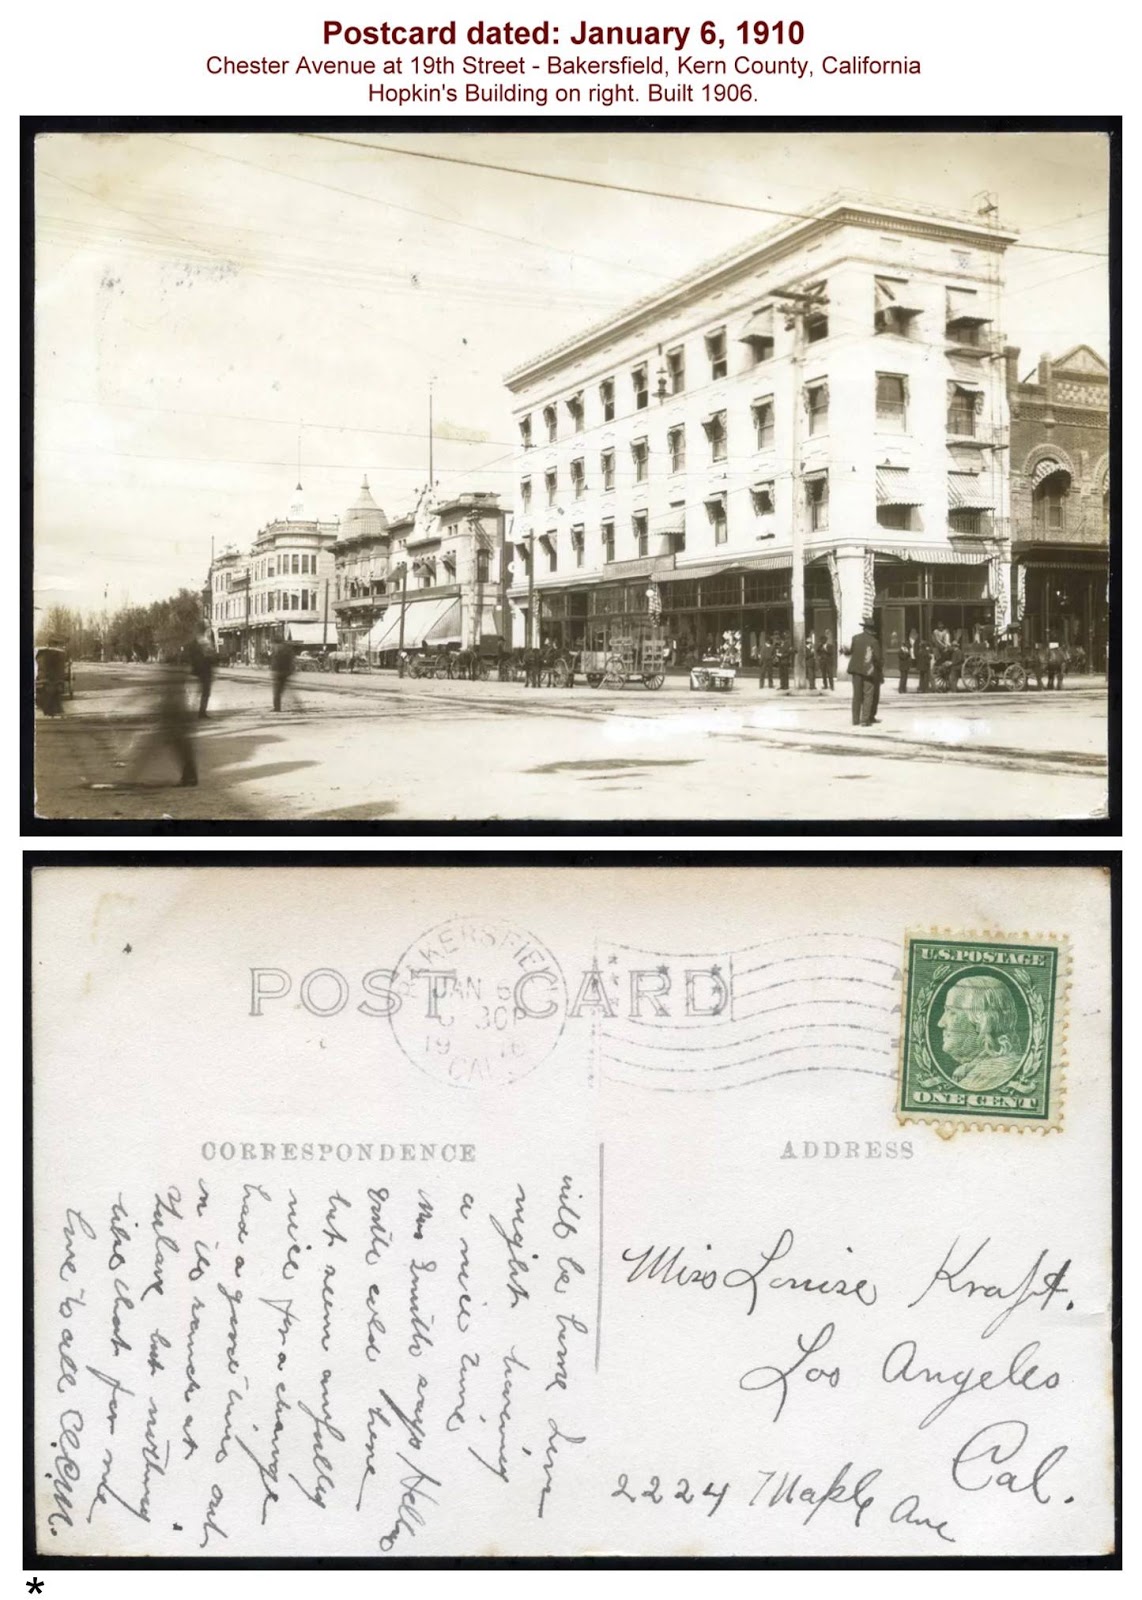 Postcard dated: January 6, 1910
Chester Avenue at 19th Street - Bakersfield, Kern County, California
Hopkin's Building on right. Built 1906.
POST CARD
BAKERSFIELD
JAN 6
30P
19 10
CAL.
U.S. POSTAGE
ONE CENT
CORRESPONDENCE
will be home Sun
night having
a nice time
Mrs Smith says Hello
Quite cold here
but seem awfully
nice for a change
had a good time out
on its ranch at
Tulare but nothing
like that for me
Love to all C.C.M.
ADDRESS
Miss Louise Kraft.
Los Angeles
Cal.
2224 Maple Ave
*